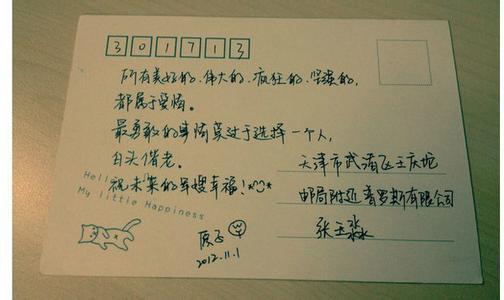 301713
所有美好的、伟大的、疯狂的、坚强的,
都属于爱情。
最勇敢的事情莫过于选择一个人,
白头偕老。
祝未来的 幸福!
Hello
My little Happiness
2012.11.1
天津市武清区王庆坨
邮局附近普罗斯有限公司
张玉淼